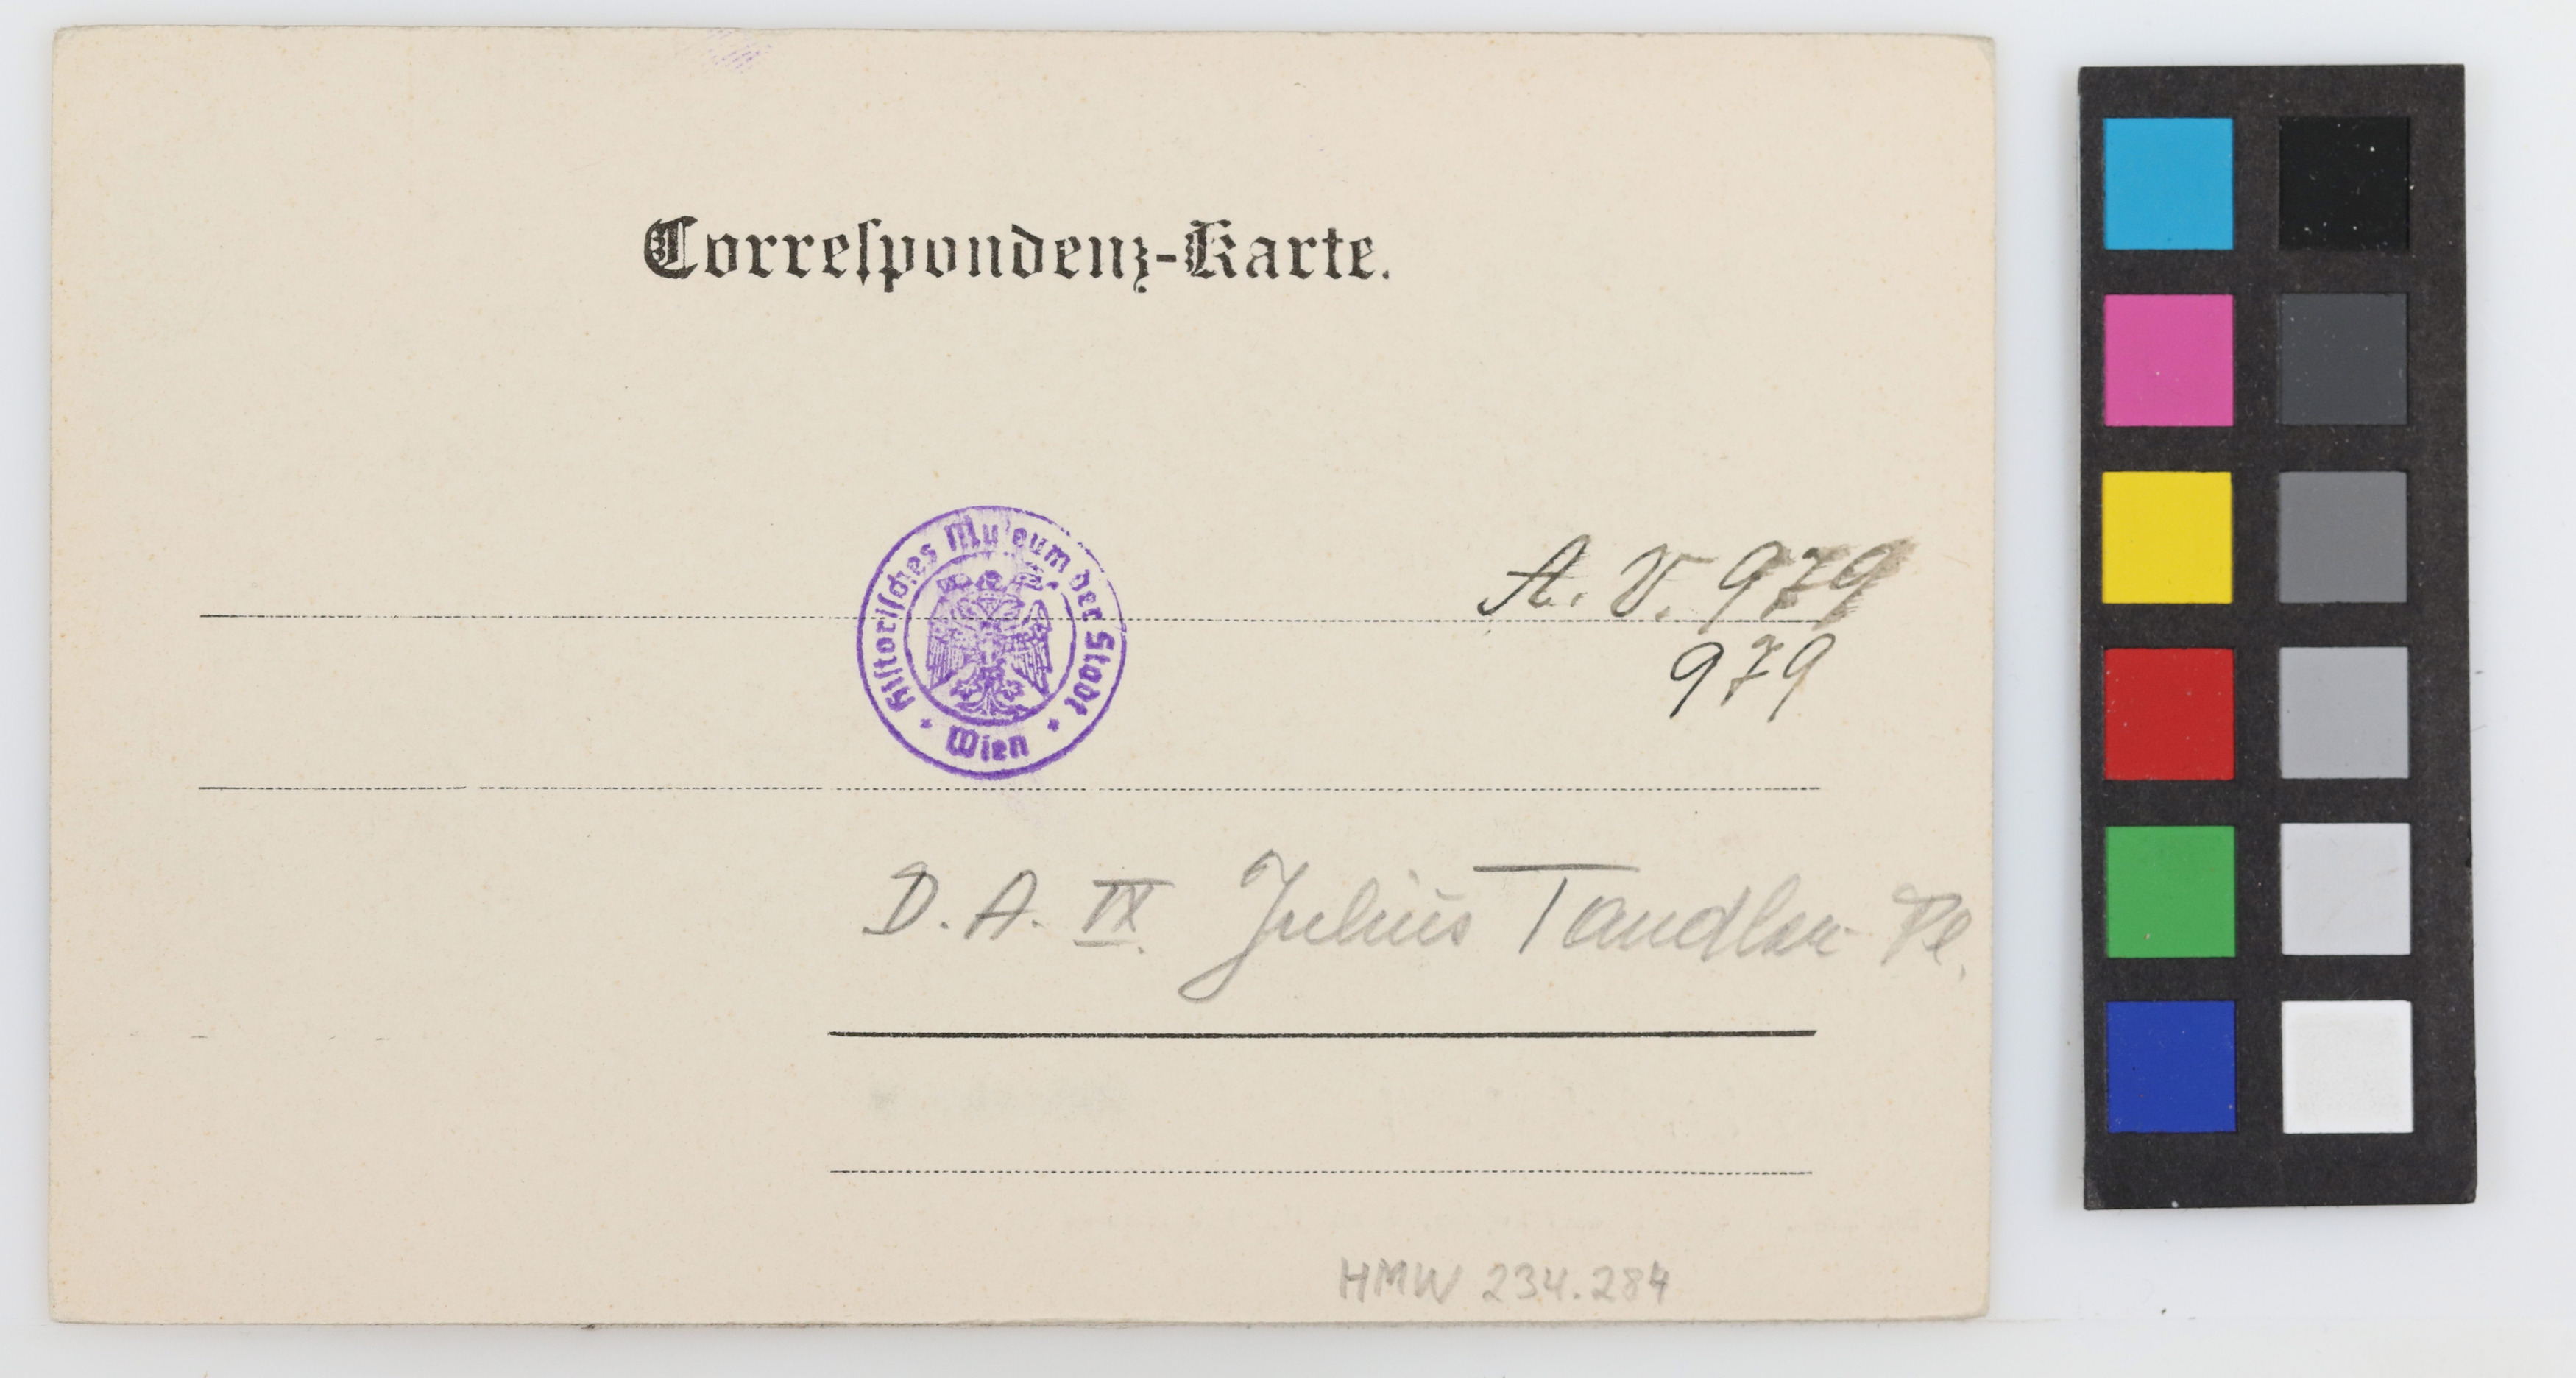 Correſpondenz-Karte.
Hiſtoriſches Muſeum der Stadt
* Wien *
A. V. 979
979
D. A. IX. Julius Tandler Pl.
HMW 234.284